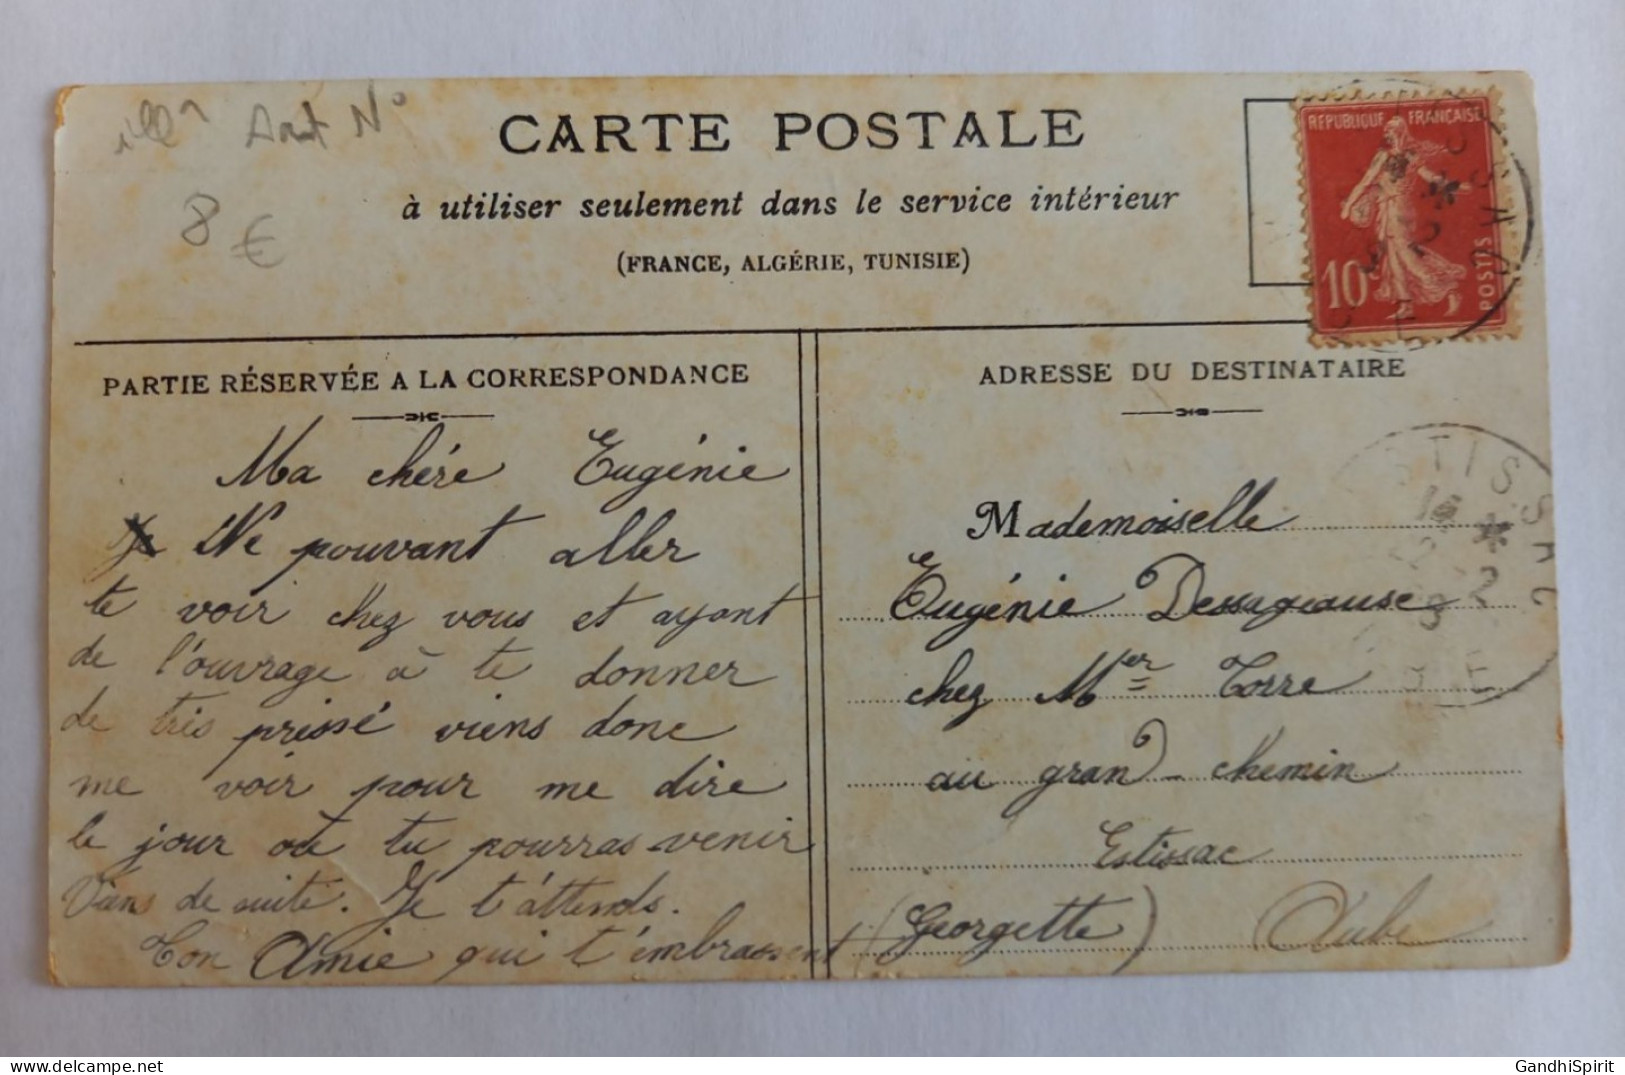 ill n Art N°
8 €
CARTE POSTALE
à utiliser seulement dans le service intérieur
(FRANCE, ALGÉRIE, TUNISIE)
RÉPUBLIQUE FRANÇAISE
10c
POSTES
PARTIE RÉSERVÉE A LA CORRESPONDANCE
Ma chère Eugénie
Ne pouvant aller
te voir chez vous et ayant
de l'ouvrage à te donner
de tris prissé viens donc
me voir pour me dire
le jour où tu pourras venir
Viens de suite. Je t'attends.
Ton Amie qui t'embrassent (Georgette)
ADRESSE DU DESTINATAIRE
Mademoiselle
Eugénie
chez Mer Torre
au grand chemin
Estissac
Aube
ESTISSAC
delcampe.net
GandhiSpirit